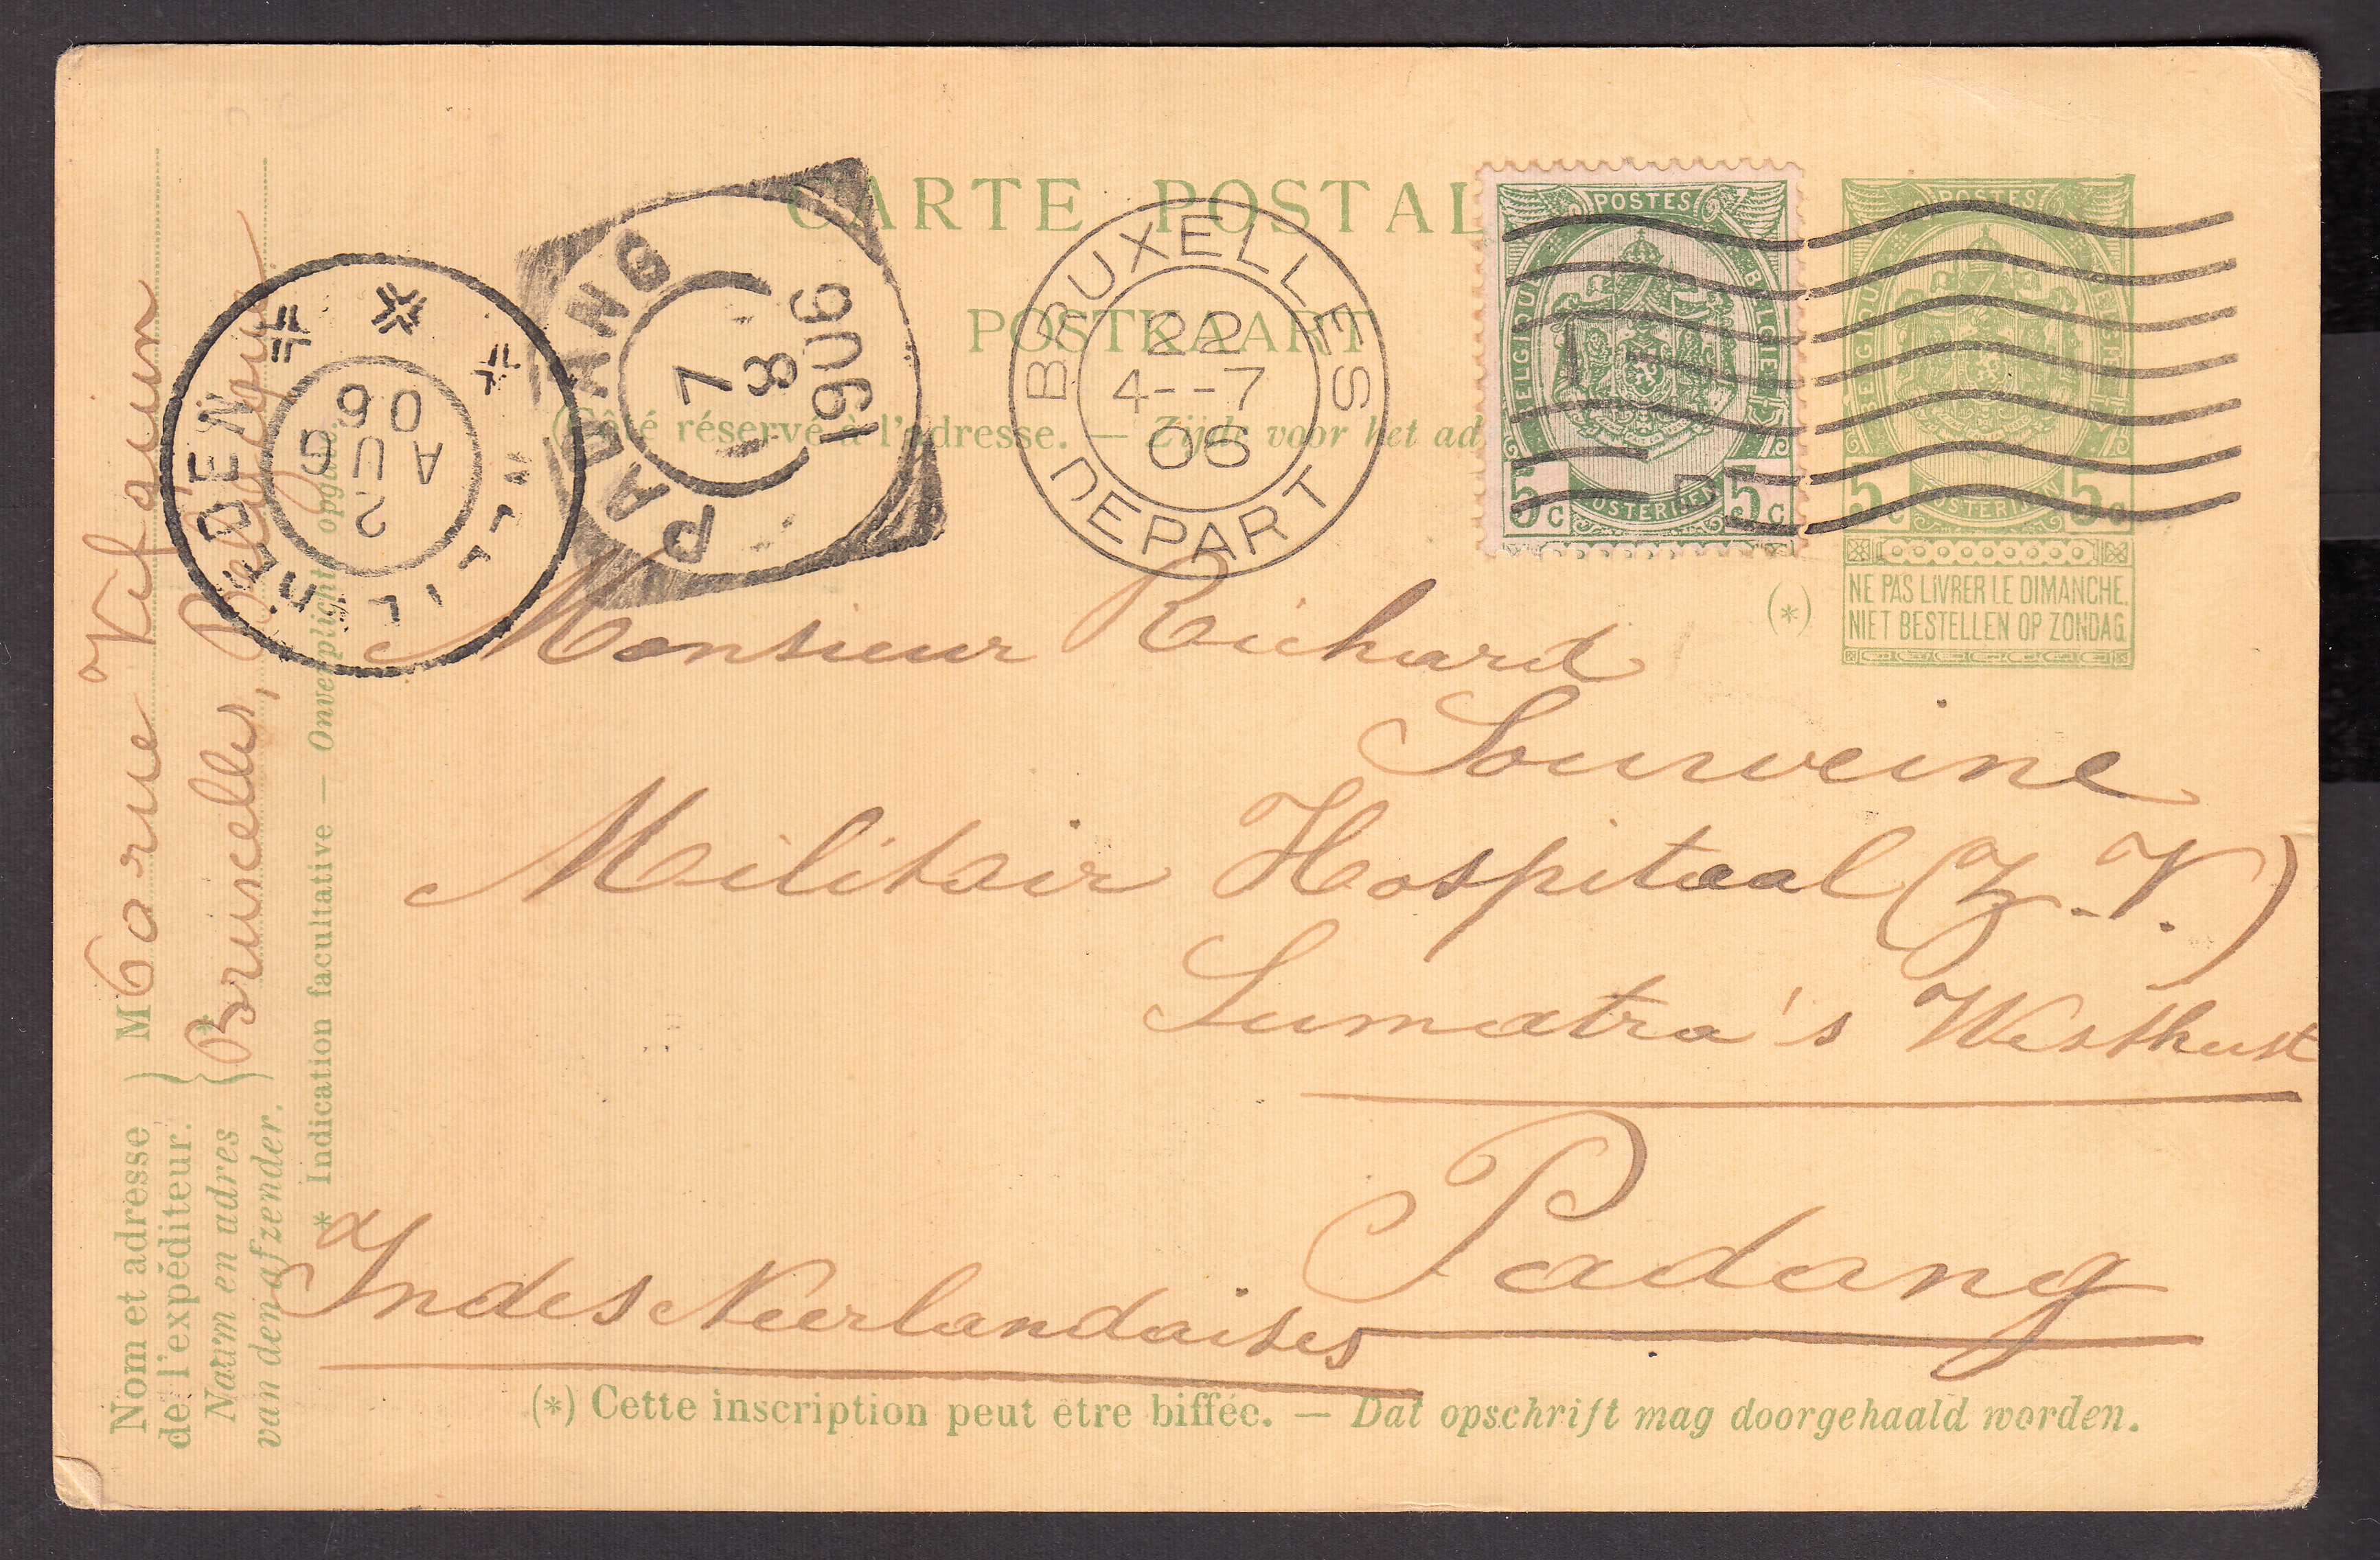 CARTE POSTAL
POSTKAART
(Côté réservé à l'adresse. — Zijde voor het ad
PADANG
7
8
1906
BRUXELLES
22
4--7
06
DEPART
2
AU G
06
POSTES
BELGIQUE
BELGIË
5 c
POSTERIJEN
5 c
POSTES
5 c
POSTERIJEN
5 c
NE PAS LIVRER LE DIMANCHE.
NIET BESTELLEN OP ZONDAG
(*)
Monsieur Richard
Sourweine
Militair Hospitaal (Z.V.)
Sumatra's Westkust
Padang
Indes Neerlandaises
(*) Cette inscription peut être biffée. — Dat opschrift mag doorgehaald worden.
Nom et adresse
de l'expéditeur.
Naam en adres
van den afzender.
M
Bruxelles, Belgique
* Indication facultative — Onverplicht opgave.